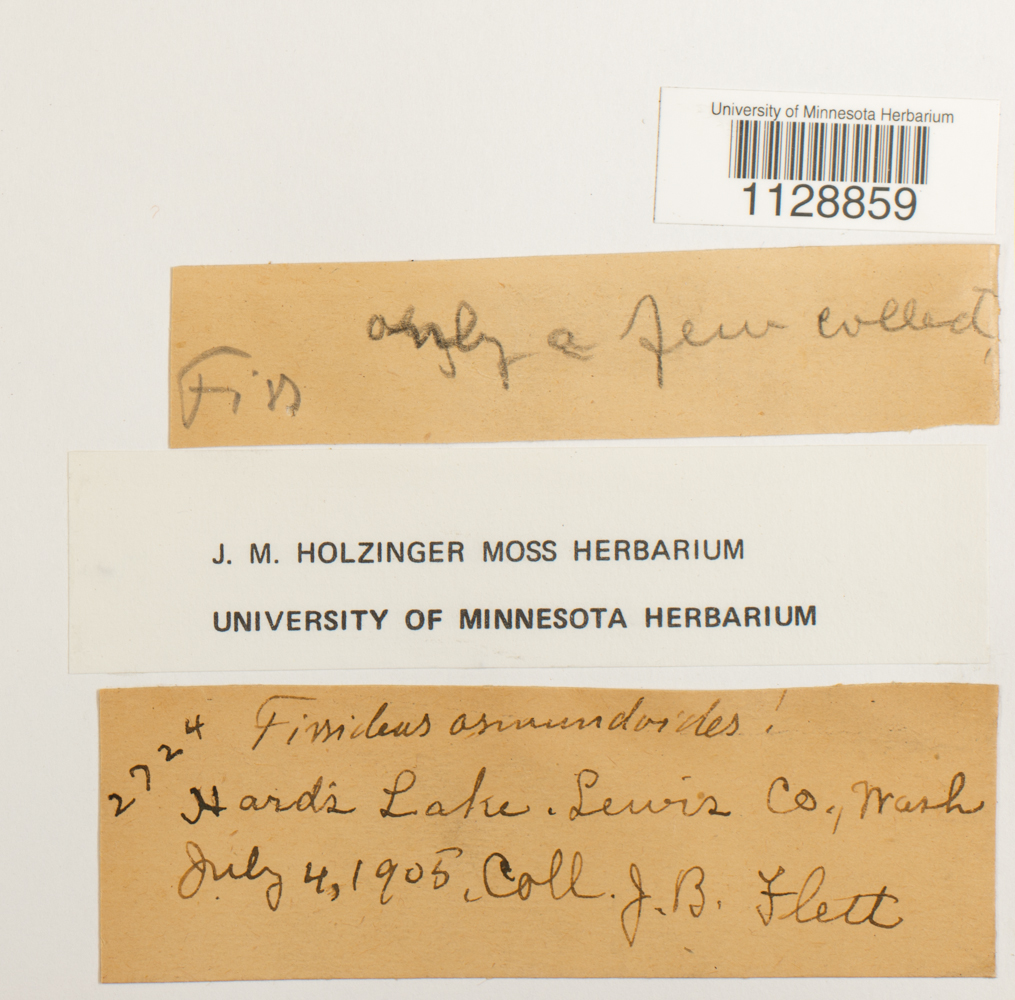 University of Minnesota Herbarium
1128859
only a few collect.
Fiss
J. M. HOLZINGER MOSS HERBARIUM
UNIVERSITY OF MINNESOTA HERBARIUM
2724 Fissidens osmundoides!
Hard's Lake. Lewis Co., Wash
July 4, 1905, Coll. J. B. Flett